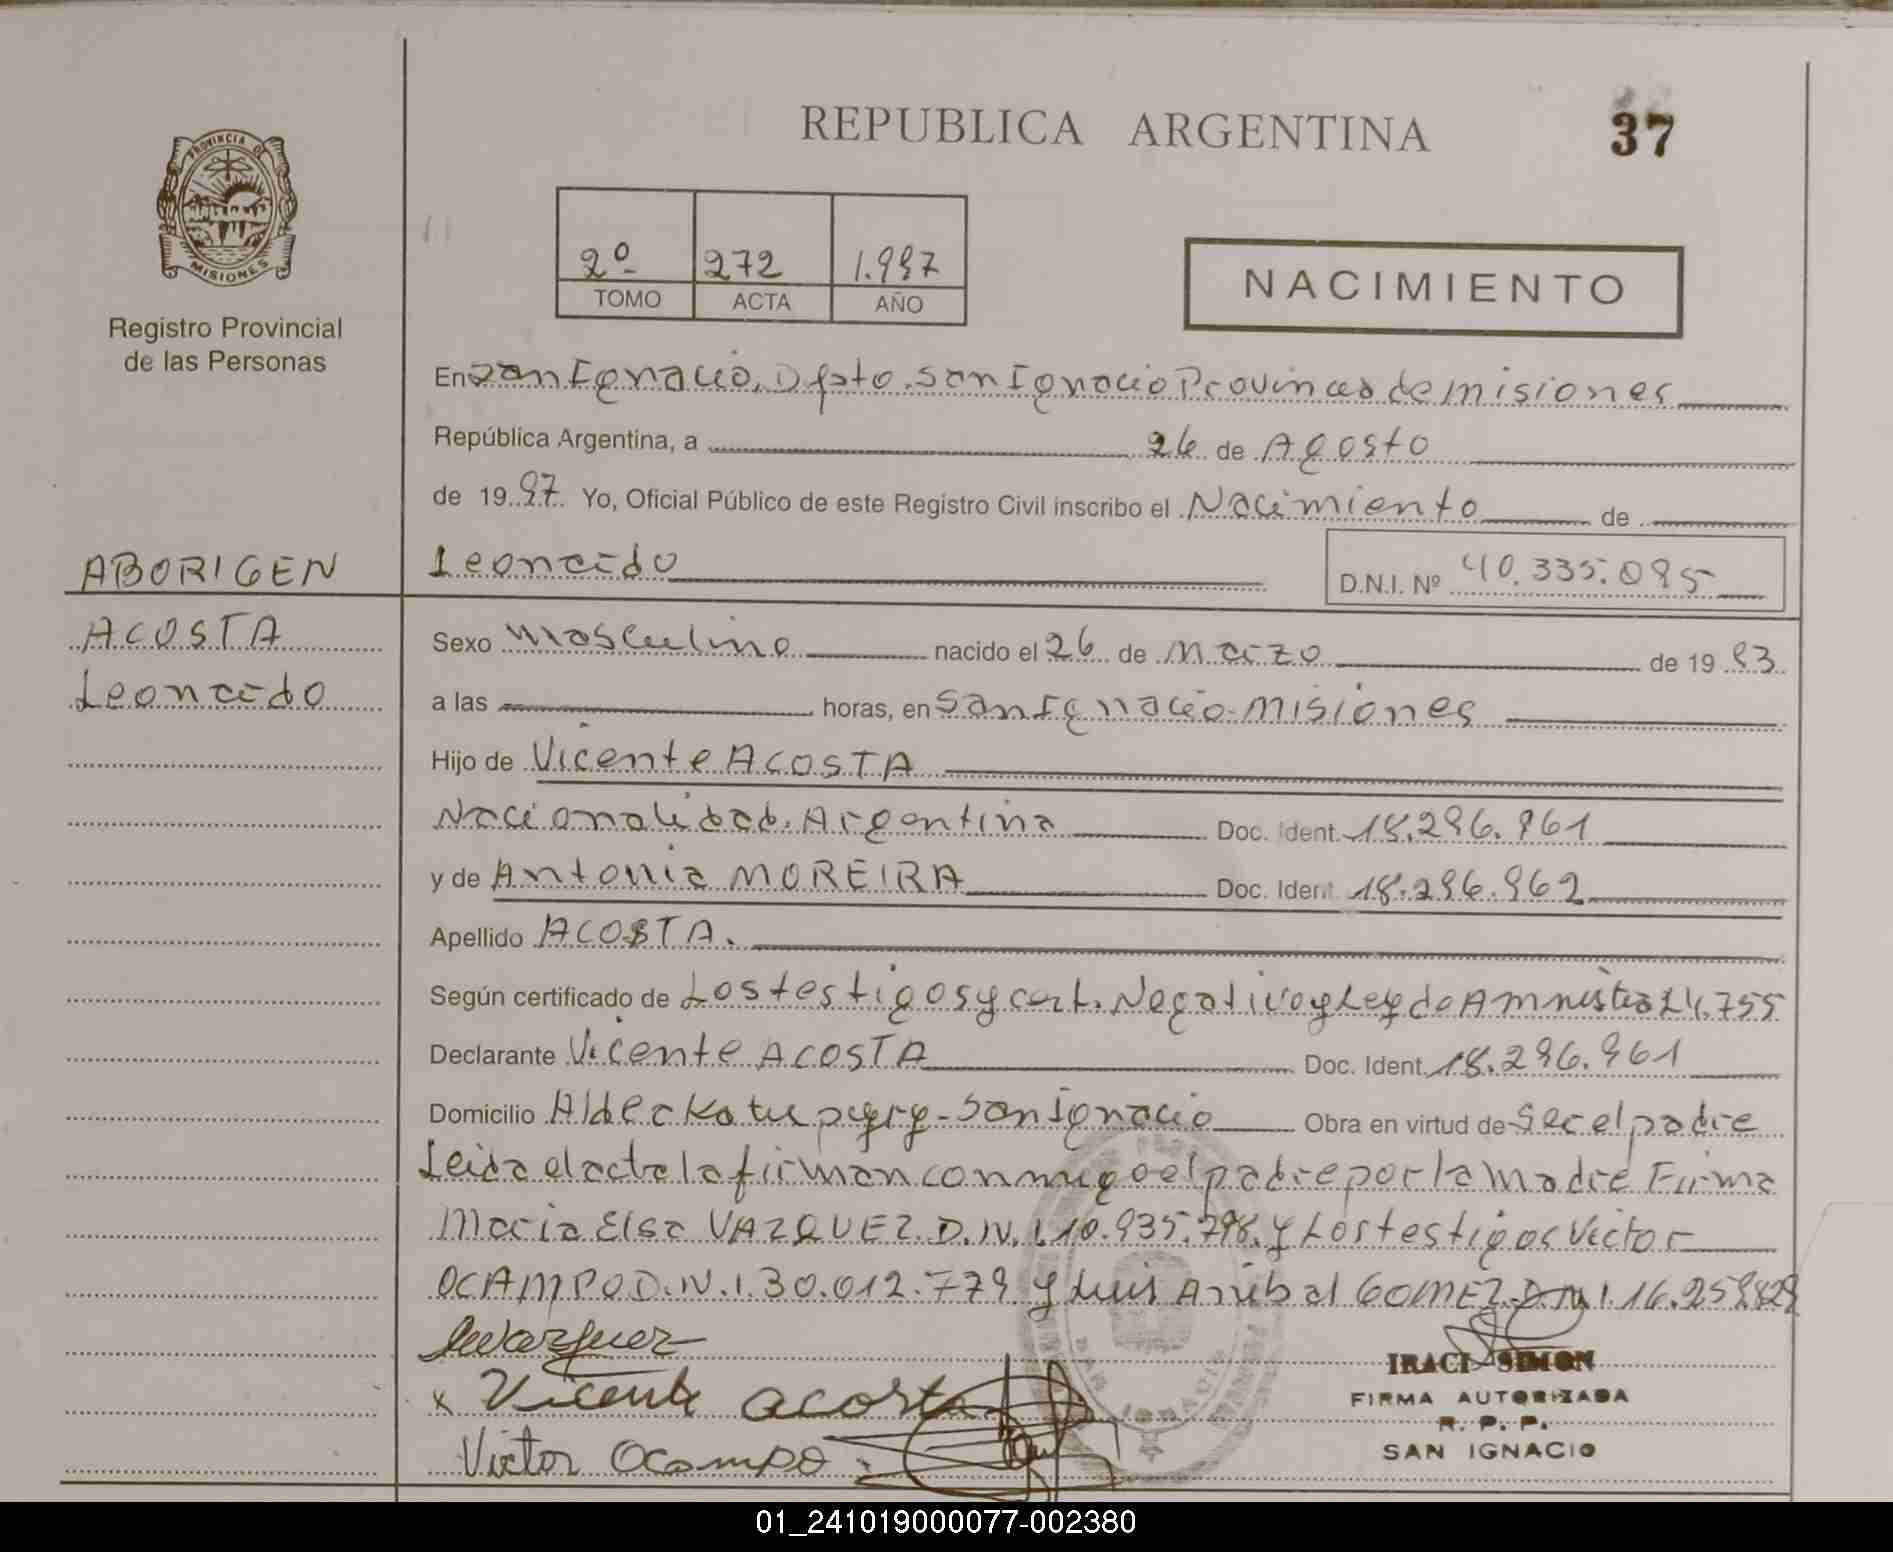 REPUBLICA ARGENTINA
37
PROVINCIA DE
MISIONES
Registro Provincial
de las Personas
2º 272 1.997
TOMO ACTA AÑO
NACIMIENTO
En San Ignacio, Dpto. San Ignacio Provincia de misiones
República Argentina, a 26 de Agosto
de 1997 Yo, Oficial Público de este Registro Civil inscribo el Nacimiento de
ABORIGEN
Leoncido
D.N.I. Nº 40.335.095
ACOSTA
Leoncido
Sexo masculino nacido el 26 de marzo de 19
a las horas, en San Ignacio-misiones
Hijo de Vicente ACOSTA
Nacionalidad. Argentina Doc. Ident. 18.296.961
y de Antonia MOREIRA Doc. Ident. 18.296.962
Apellido ACOSTA.
Según certificado de Los testigos y cert. Negativo y Ley de Amnistia 24.755
Declarante Vicente ACOSTA Doc. Ident. 18.296.961
Domicilio Aldea Katupyry-San Ignacio Obra en virtud de Ser el padre
Leida el acta la firman conmigo el padre por la madre Firma
Maria Elsa VAZQUEZ. D.N.I. 10.935.798. y Los testigos Victor
OCAMPO D.N.I. 30.012.779 y Luis Anibal GOMEZ. D.N.I. 16.259.829
Vicente acosta
Victor Ocampo
IRACI SIMON
FIRMA AUTORIZADA
R. P. P.
SAN IGNACIO
01_241019000077-002380